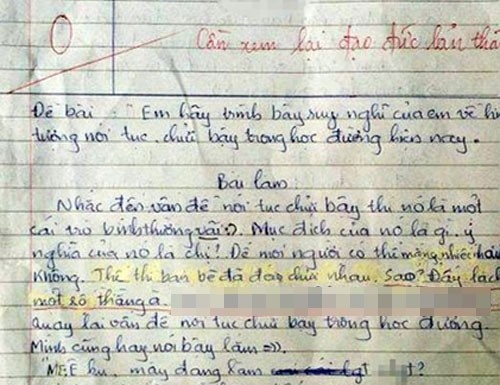 0
Cần xem lại đạo đức bản thâ
Đề bài: "Em hãy trình bày suy nghĩ của em về hi
tượng nói tục, chửi bậy trong học đường hiện nay.
Bài làm
Nhắc đến vấn đề nói tục chửi bậy thì nó là một
cái trò bình thường vãi:). Mục đích của nó là gì, ý
nghĩa của nó là chi! Để mọi người có thể mắng nhiếc hay
không. Thế thì bạn bè đã chửi nhau. Sao? Đấy là cách
một số tháng a.
quay lại vấn đề nói tục chửi bậy trong học đường.
Mình cũng hay nói bậy lắm =)).
"MẸ ku, mày đang làm t?